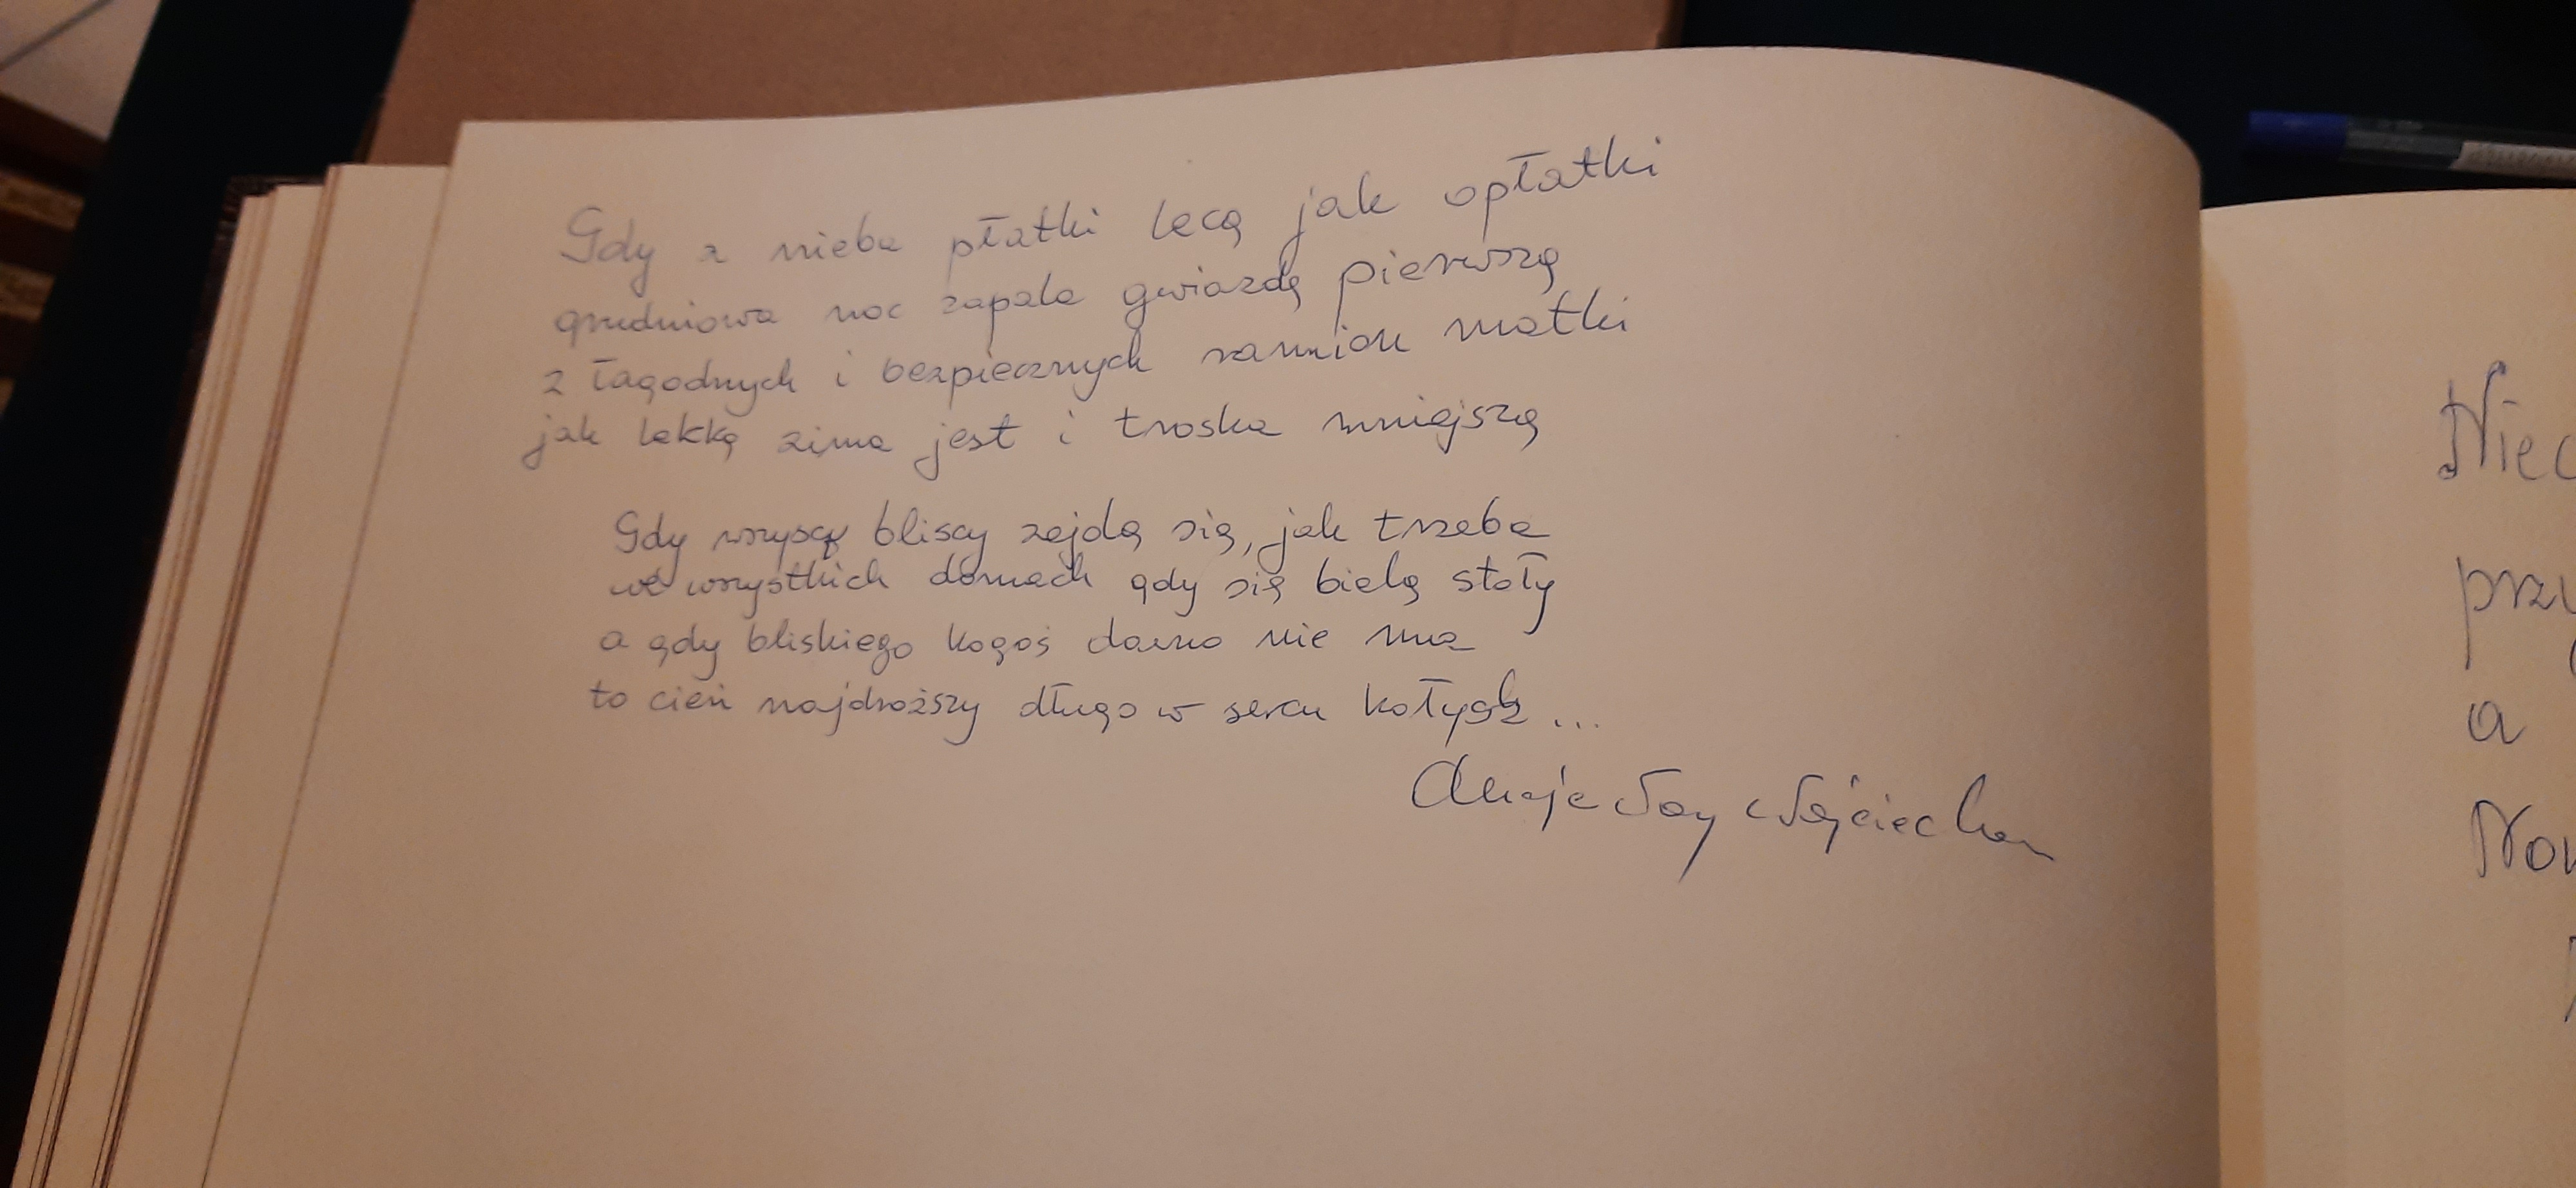 Gdy z nieba płatki lecą jak opłatki
grudniowa noc zapala gwiazdę pierwszą
z łagodnych i bezpiecznych ramion matki
jak lekką zima jest i troska mniejszą
Gdy wszyscy bliscy zejdą się, jak trzeba
we wszystkich domach gdy się bielą stoły
a gdy bliskiego kogoś dawno nie ma
to cień najdroższy długo w sercu
Niec
przy
a
Now